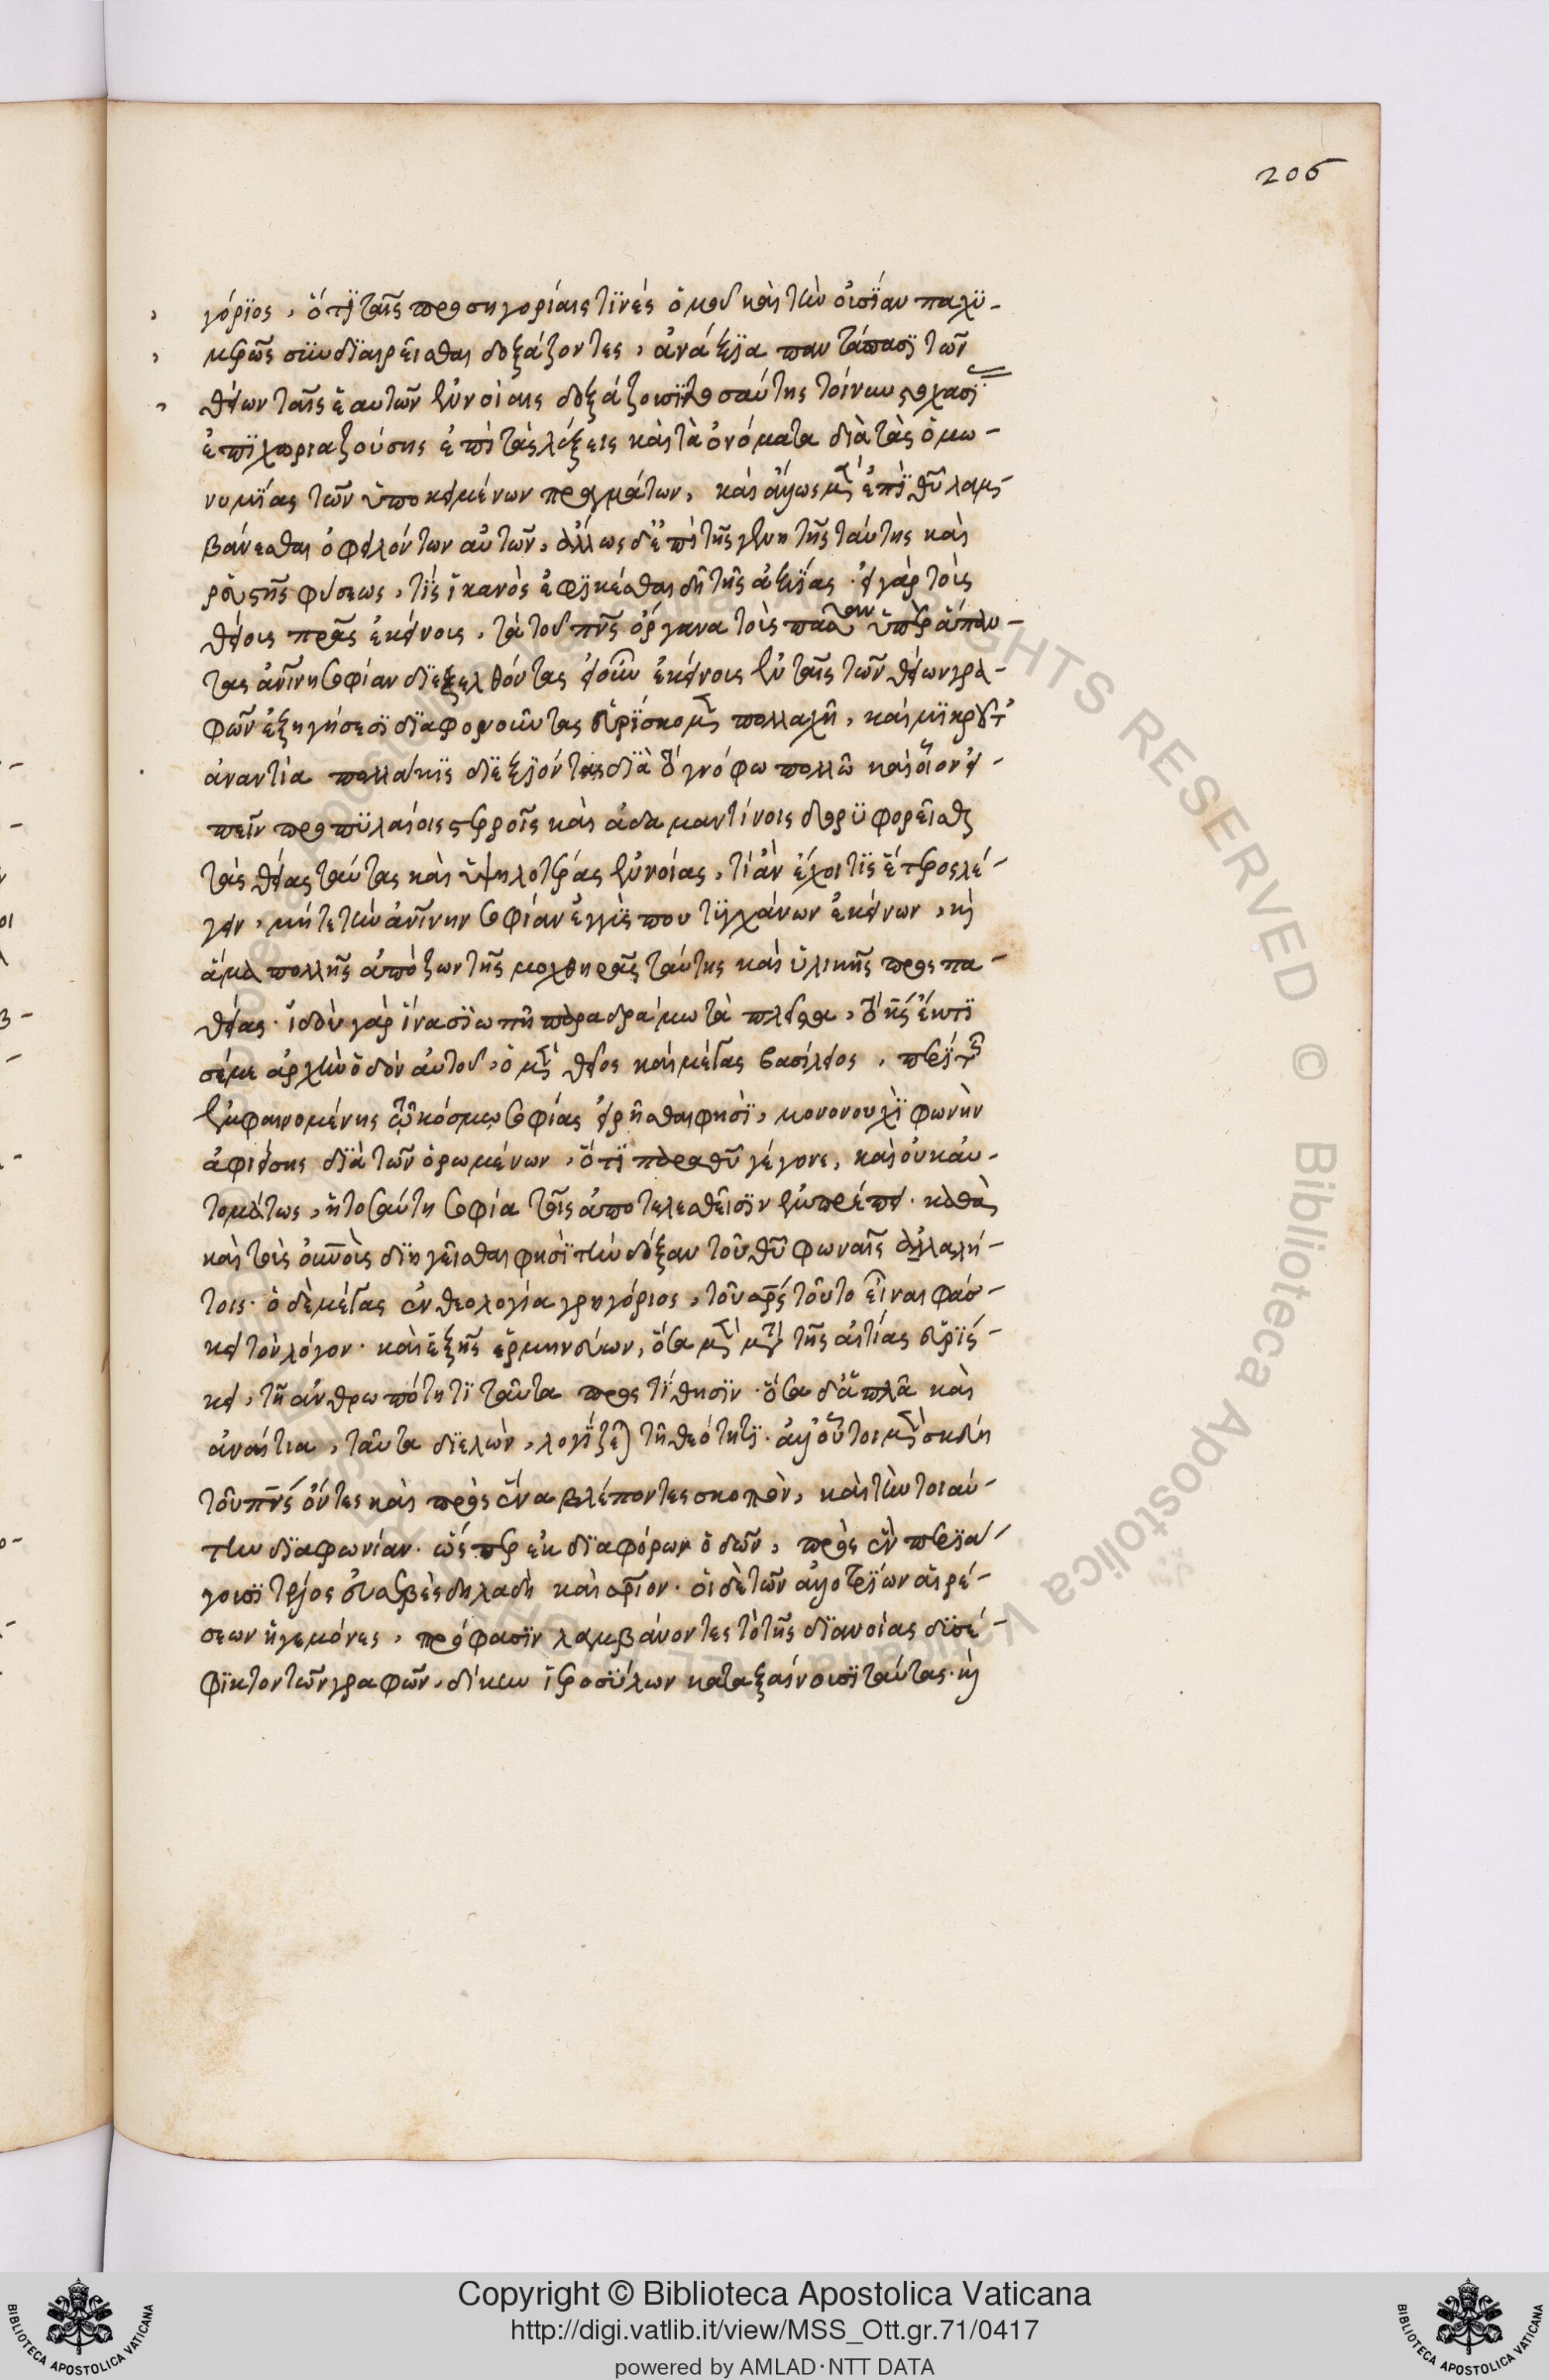 206
γόριος, ὅτι ταῖς προσηγορίαις τινές ὁμοῦ καὶ τὴν οὐσίαν πολυ-
μερῶς συνδιαιρεῖσθαι δοξάζοντες, ἀνάξια παντάπασι τῶν
θείων ταῖς ἑαυτῶν ἐννοίαις δοξάζουσι τοσαύτης τοίνυν
ἐπιχωριαζούσης ἐπὶ τὰς λέξεις καὶ τὰ ὀνόματα διὰ τὰς ὁμω-
νυμίας τῶν ὑποκειμένων πραγμάτων, καὶ ἄλλως μὲν ἐπὶ θυ λαμ-
βάνεσθαι ὀφειλόντων αὐτῶν, ἄλλως δ' ἐπὶ τῆς γεννητῆς ταύτης καὶ
ῥευστῆς φύσεως, τίς ἱκανὸς ἐφικέσθαι δὴ τῆς ἀξίας. εἰ γὰρ τοῖς
θείοις πρασ ἐκείνοις, τὰ τοῦ πνς ὄργανα τοὺς πᾶσαν
τας ανινη σοφίαν διεξελθόντας εἰ οὖν ἐκείνοις ἐν ταῖς τῶν θείων γρα-
φῶν ἐξηγήσεσι διαφορουῦντας εὑρίσκομεν πολλαχῆ, καὶ μικροῦ τ
ἀναντία πολλάκις διεξιόντας διὰ τὸ γνόφω πολλῶ καὶ οἷον εἰ-
πεῖν προπυλαίοις στερροῖς καὶ ἀδαμαντίνοις δορυφορεῖσθαι
τὰς θείας ταύτας καὶ ὑψηλοτέρας ἐννοίας, τί ἂν ἔχοι τις ἕτερος λέ-
γειν, μήτε τὴν ανινην σοφίαν ἐγγύς που τυγχάνων ἐκείνων, καὶ
ἅμα πολλῆς ἀπόζων τῆς μοχθηρᾶς ταύτης καὶ ὑλικῆς προσπα-
θείας. ἰδοὺ γὰρ ἵνα σιωπῆ παραδράμω τὰ πλεῖστα, τὸ κς ἔκτι
σέ με ἀρχὴν ὁδὸν αὐτοῦ, ὁ μὲν θεῖος καὶ μέγας βασίλειος, περὶ τῆς
ἐμφαινομένης τῶ κόσμω σοφίας εἰρῆσθαι φησὶ, μονονουχὶ φωνὴν
ἀφιείσης διὰ τῶν ὁρωμένων, ὅτι παρὰ θυ γέγονε, καὶ οὐκ αὐ-
τομάτως, ἡ τοσαύτη σοφία τοῖς ἀποτελεσθεῖσιν ἐμπρέπει. καθὰ
καὶ τοὺς οὐνοὺς διηγεῖσθαι φησὶ τὴν δόξαν τοῦ θυ φωναῖς ἀλαλή-
τοις. ὁ δὲ μέγας ἐν θεολογία γρηγόριος, τοῦ πρς τοῦτο εἶναι φάσ-
κει τὸν λόγον. καὶ ἑξῆς ἑρμηνεύων, ὅσα μὲν μετὰ τῆς αἰτίας εὑρίσ-
κει, τῆ ἀνθρωπότητι ταῦτα προστίθησιν. ὅσα δ' ἁπλᾶ καὶ
ἀναίτια, ταῦτα διελὼν, λογίζεται τῆ θεότητι. ἀλλ' οὗτοι μὲν σκεύη
τοῦ πνς ὄντες καὶ πρὸς ἕνα βλέποντες σκοπὸν, καὶ τὴν τοιαύ-
την διαφωνίαν. ὥσπερ ἐκ διαφόρων ὁδῶν, πρὸς ἓν περιά-
γουσι τέλος εὐσεβὲς δηλαδὴ καὶ ἅγιον. οἱ δὲ τῶν ἀλλοτρίων αἱρέ-
σεων ἡγεμόνες, πρόφασιν λαμβάνοντες τὸ τῆς διανοίας δυσέ-
φικτον τῶν γραφῶν, δίκην ἱεροσύλων καταξαίνουσι ταύτας. καὶ
Copyright © Biblioteca Apostolica Vaticana
http://digi.vatlib.it/view/MSS_Ott.gr.71/0417
powered by AMLAD·NTT DATA